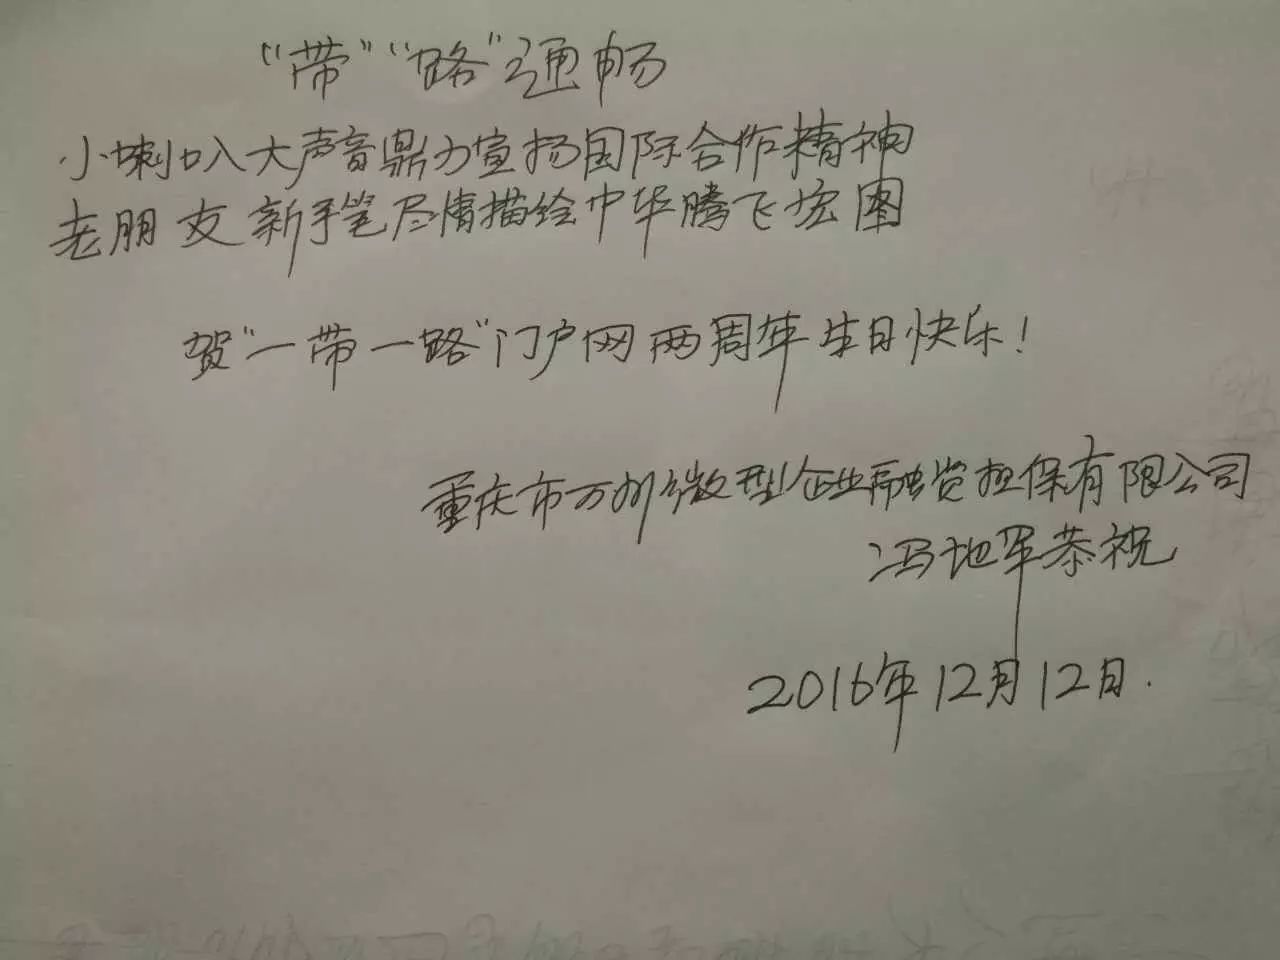 “带”“路”通畅
小喇叭大声音鼎力宣扬国际合作精神
老朋友新手笔尽情描绘中华腾飞宏图
贺“一带一路”门户网两周年生日快乐！
重庆市万州微型企业融资担保有限公司
冯地军恭祝
2016年12月12日.